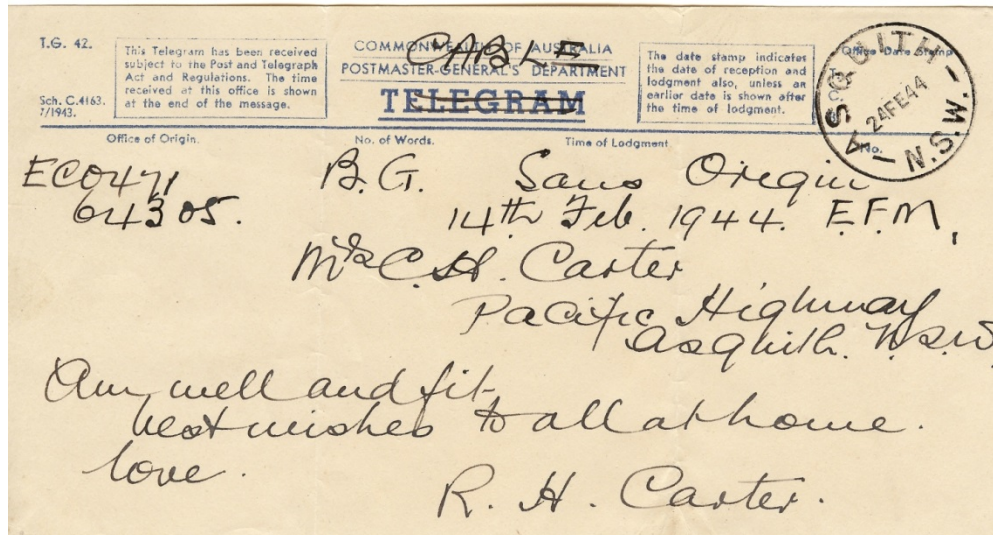 T.G. 42.
Sch. C.4163.
7/1943.
This Telegram has been received
subject to the Post and Telegraph
Act and Regulations. The time
received at this office is shown
at the end of the message.
COMMONWEALTH OF AUSTRALIA
CABLE
POSTMASTER-GENERAL'S DEPARTMENT
TELEGRAM
The date stamp indicates
the date of reception and
lodgment also, unless an
earlier date is shown after
the time of lodgment.
Office Date Stamp
ASQUITH
24FE44
N.S.W.
Office of Origin.
No. of Words.
Time of Lodgment.
No.
ECO471 B.G. Sans Origin
64305. 14th Feb. 1944. E.F.M.
Mrs C. H. Carter
Pacific Highway
Asquith. N.S.W.
Am well and fit
best wishes to all at home.
love.
R. H. Carter.